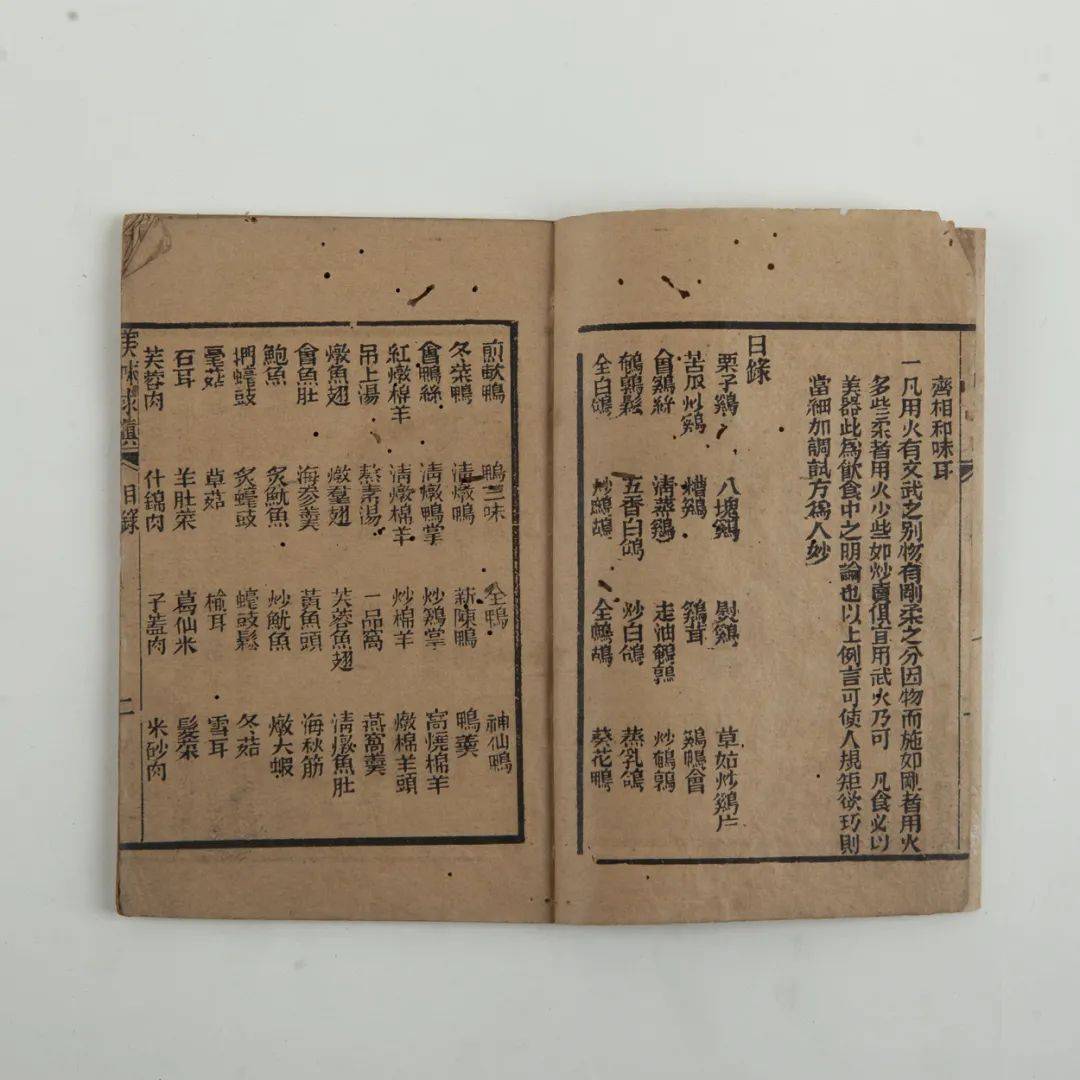 齊相和味耳
一凡用火有文武之别物有剛柔之分因物而施如剛者用火
多些柔者用火少些如炒賣俱宜用武火乃可 凡食必以
美器此爲飲食中之明論也以上例言可使人規矩欲巧則
當細加調試方爲人妙
目錄
栗子鷄 八塊鷄 熨鷄 草姑炒鷄片
苦瓜炒鷄 糟鷄 鷄茸 鷄鴨會
會鷄絲 清蒸鷄 走油鵪鶉 炒鵪鶉
鵪鶉鬆 五香白鴿 炒白鴿 蒸乳鴿
全白鴿 炒鷓鴣 全鷓鴣 葵花鴨
煎軟鴨 鴨三味 全鴨 神仙鴨
冬菜鴨 清燉鴨 新陳鴨 鴨羹
會鴨絲 清燉鴨掌 炒鷄掌 窩燒棉羊
紅燉棉羊 清燉棉羊 炒棉羊 燉棉羊頭
吊上湯 蒸素湯 一品窩 燕窩羹
燉魚翅 燉羣翅 芙蓉魚翅 清燉魚肚
會魚肚 海參羹 黃魚頭 海秋筋
鮑魚 炙魷魚 炒魷魚 燉大蝦
捫蠔豉 炙蠔豉 蠔豉鬆 冬菇
毫菇 草菇 榆耳 雪耳
石耳 羊肚菜 葛仙米 髮菜
芙蓉肉 什錦肉 子蓋肉 米砂肉
美味求真 目錄 二